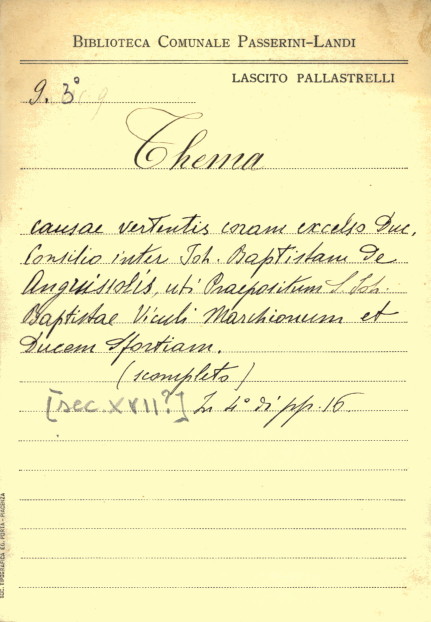 BIBLIOTECA COMUNALE PASSERINI-LANDI
LASCITO PALLASTRELLI
9. 3°
Thema
causae vertentis coram excelso Duc.
Consilio inter Joh. Baptistam de
Angussolis, uti Praepositum S. Joh.
Baptistae Viculi Marchionum et
Ducem Sfortiam.
(scompleto)
[sec. XVII?] In 4° di pp. 16
SOC. TIPOGRAFICA ED. PORTA - PIACENZA